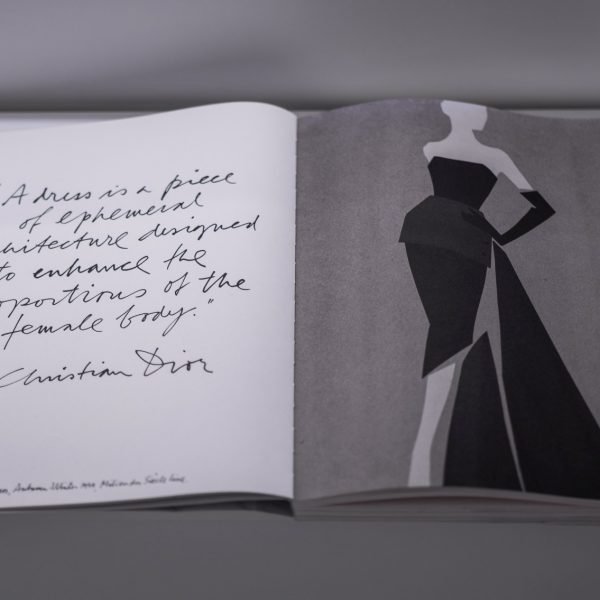 "A dress is a piece
of ephemeral
chitecture designed
to enhance the
oportions of the
female body."
Christian Dior
Autumn Winter Milieu du Siècle line